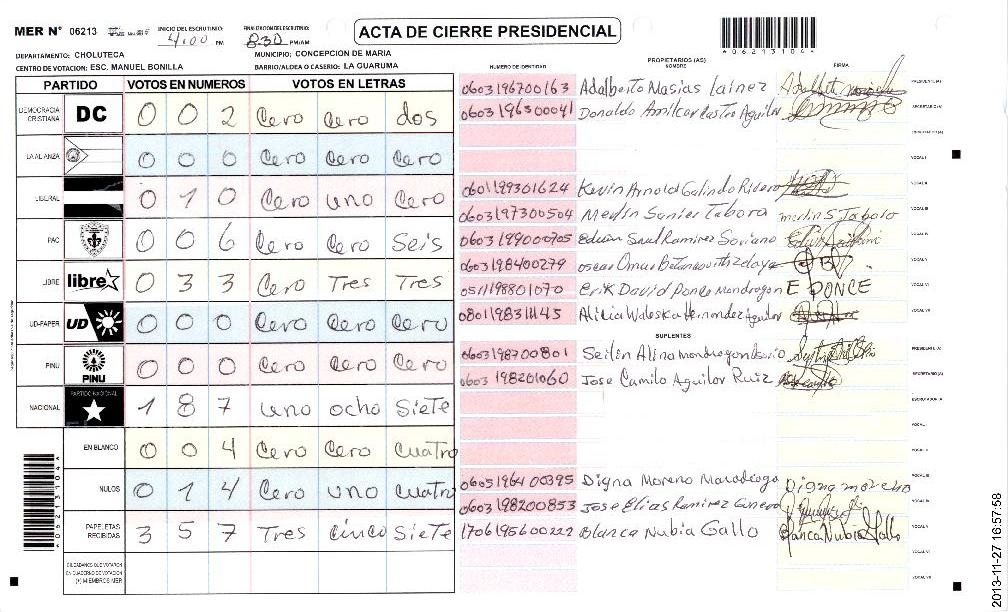 MER N° 06213 INICIO DEL ESCRUTINIO: 4:00 PM FINALIZACION DEL ESCRUTINIO: 8:30 PM/AM
ACTA DE CIERRE PRESIDENCIAL
*06213104*
DEPARTAMENTO: CHOLUTECA MUNICIPIO: CONCEPCION DE MARIA
CENTRO DE VOTACION: ESC. MANUEL BONILLA BARRIO/ALDEA O CASERIO: LA GUARUMA
PARTIDO VOTOS EN NUMEROS VOTOS EN LETRAS
DEMOCRACIA CRISTIANA DC 0 0 2 Cero Cero dos
LA ALIANZA 0 0 0 Cero Cero Cero
LIBERAL 0 1 0 Cero uno Cero
PAC 0 0 6 Cero Cero Seis
LIBRE libre 0 3 3 Cero Tres Tres
UD-FAPER UD 0 0 0 Cero Cero Cero
PINU PINU 0 0 0 Cero Cero Cero
NACIONAL PARTIDO NACIONAL 1 8 7 uno ocho Siete
EN BLANCO 0 0 4 Cero Cero cuatro
NULOS 0 1 4 Cero uno cuatro
PAPELETAS RECIBIDAS 3 5 7 Tres cinco Siete
CIUDADANOS QUE VOTARON EN CUADERNO DE VOTACION (+) MIEMBROS MER
*06213104*
PROPIETARIOS (AS)
NUMERO DE IDENTIDAD NOMBRE FIRMA
0603196700163 Adalberto Masias Lainez PRESIDENTE (A)
0603196300041 Donaldo Amilcar Castro Aguilar SECRETARIO (A)
ESCRUTADOR (A)
VOCAL I
0601199301624 Kevin Arnold Galindo Rivera VOCAL II
0603197300504 Merlin Sonier Tabora merlin S Tabora VOCAL III
0603199000705 Edwin Saul Ramirez Soriano VOCAL IV
0603198400279 oscar Omar VOCAL V
0511198801070 Erik David Ponce Mondragon E PONCE VOCAL VI
0801198311145 Alicia Waleska Hernandez Aguilar VOCAL VII
SUPLENTES
0603198700801 Seilin Alina mondragon PRESIDENTE (A)
0603198201060 Jose Camilo Aguilar Ruiz SECRETARIO (A)
ESCRUTADOR (A)
VOCAL I
VOCAL II
0605196400395 Digna Moreno Maradiaga Digna moreno VOCAL III
0603198200853 Jose Elias Ramirez VOCAL IV
1706195600222 Blanca Nubia Gallo Blanca Nubia Gallo VOCAL V
VOCAL VI
VOCAL VII
2013-11-27 16:57:58